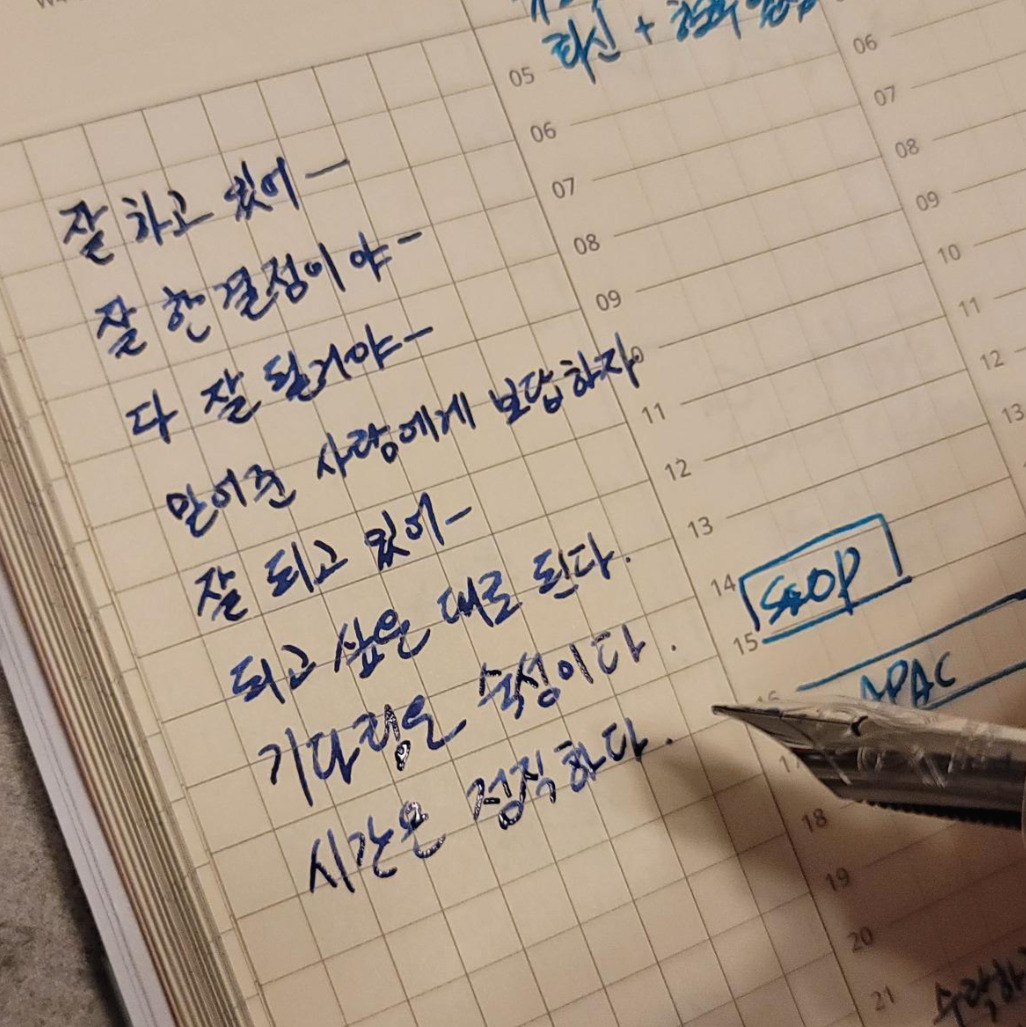 잘 하고 있어 —
잘 한 결정이야 —
다 잘 될거야 —
믿어준 사람에게 보답하자.
잘 되고 있어 —
되고 싶은 대로 된다.
기다림은 숙성이다.
시간은 정직하다.
05
06
07
08
09
11
12
13
14
15
18
19
20
21
SOP
APAC
06
07
08
09
10
11
12
13